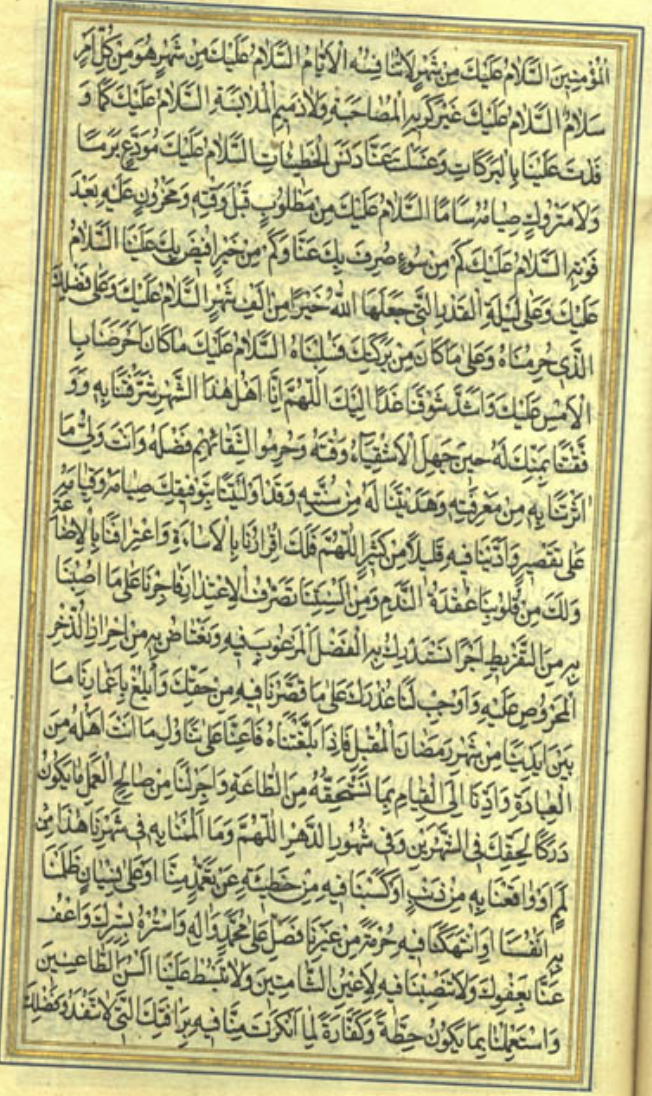 الْمُؤْمِنِينَ السَّلَامُ عَلَيْكَ مِنْ شَهْرٍ لَا تُنَافِسُهُ الْأَيَّامُ السَّلَامُ عَلَيْكَ مِنْ شَهْرٍ هُوَ مِنْ كُلِّ أَمْرٍ
سَلَامٌ السَّلَامُ عَلَيْكَ غَيْرَ كَرِيهِ الْمُصَاحَبَةِ وَلَا ذَمِيمِ الْمُلَابَسَةِ السَّلَامُ عَلَيْكَ كَمَا وَ
فَدْتَ عَلَيْنَا بِالْبَرَكَاتِ وَغَسَلْتَ عَنَّا دَنَسَ الْخَطِيئَاتِ السَّلَامُ عَلَيْكَ مُوَدَّعٍ بَرَمًا
وَلَا مَتْرُوكٍ صِيَامُهُ سَأَمًا السَّلَامُ عَلَيْكَ مِنْ مَطْلُوبٍ قَبْلَ وَقْتِهِ وَمَحْزُونٍ عَلَيْهِ بَعْدَ
فَوْتِهِ السَّلَامُ عَلَيْكَ كَمْ مِنْ سُوءٍ صُرِفَ بِكَ عَنَّا وَكَمْ مِنْ خَيْرٍ أُفِيضَ بِكَ عَلَيْنَا السَّلَامُ
عَلَيْكَ وَعَلَى لَيْلَةِ الْقَدْرِ الَّتِي جَعَلَهَا اللَّهُ خَيْرًا مِنْ أَلْفِ شَهْرٍ السَّلَامُ عَلَيْكَ وَعَلَى فَضْلِكَ
الَّذِي حُرِمْنَاهُ وَعَلَى مَا كَانَ مِنْ بَرَكَتِكَ فَسُلِبْنَاهُ السَّلَامُ عَلَيْكَ مَا كَانَ أَحْرَصَنَا بِا
لْأَمْسِ عَلَيْكَ وَأَشَدَّ شَوْقَنَا غَدًا إِلَيْكَ اللَّهُمَّ إِنَّا أَهْلُ هٰذَا الشَّهْرِ شَرَّفْتَنَا بِهِ وَوَ
فَّقْتَنَا بِمَنِّكَ لَهُ حِينَ جَهِلَ الْأَشْقِيَاءُ وَقْتَهُ وَحُرِمُوا لِشَقَائِهِمْ فَضْلَهُ وَأَنْتَ وَلِيُّ مَا
آثَرْتَنَا بِهِ مِنْ مَعْرِفَتِهِ وَهَدَيْتَنَا لَهُ مِنْ سُنَّتِهِ وَقَدْ تَوَلَّيْنَا بِتَوْفِيقِكَ صِيَامَهُ وَقِيَامَهُ
عَلَى تَقْصِيرٍ وَأَدَّيْنَا فِيهِ قَلِيلًا مِنْ كَثِيرٍ اللَّهُمَّ فَلَكَ إِقْرَارُنَا بِالْإِسَاءَةِ وَاعْتِرَافُنَا بِالْإِضَاعَةِ
وَلَكَ مِنْ قُلُوبِنَا عُقْدَةُ النَّدَمِ وَمِنْ أَلْسِنَتِنَا تَصَرُّفُ الْاِعْتِذَارِ فَأْجُرْنَا عَلَى مَا أَصَبْنَا
بِهِ مِنَ التَّفْرِيطِ أَجْرًا نَسْتَدْرِكُ بِهِ الْفَضْلَ الْمَرْغُوبَ فِيهِ وَنَعْتَاضُ بِهِ مِنْ إِحْرَازِ الذُّخْرِ
الْمَحْرُوصِ عَلَيْهِ وَأَوْجِبْ لَنَا عُذْرَكَ عَلَى مَا قَصَّرْنَا فِيهِ مِنْ حَقِّكَ وَأَبْلِغْ بِأَعْمَارِنَا مَا
بَيْنَ أَيْدِينَا مِنْ شَهْرِ رَمَضَانَ الْمُقْبِلِ فَإِذَا بَلَّغْتَنَاهُ فَأَعِنَّا عَلَى تَنَاوُلِ مَا أَنْتَ أَهْلُهُ مِنَ
الْعِبَادَةِ وَأَدِّنَا إِلَى الْقِيَامِ بِمَا تَسْتَحِقُّهُ مِنَ الطَّاعَةِ وَأَجْرِ لَنَا مِنْ صَالِحِ الْعَمَلِ مَا يَكُونُ
دَرَكًا لِحَقِّكَ فِي الشَّهْرَيْنِ وَفِي شُهُورِ الدَّهْرِ اللَّهُمَّ وَمَا أَلْمَمْنَا بِهِ فِي شَهْرِنَا هٰذَا مِنْ
لَمَمٍ أَوْ وَاقَعْنَا بِهِ مِنْ ذَنْبٍ أَوْ كَسَبْنَا فِيهِ مِنْ خَطِيئَةٍ عَنْ تَعَمُّدٍ مِنَّا أَوْ عَلَى نِسْيَانٍ ظَلَمْنَا
بِهِ أَنْفُسَنَا أَوِ انْتَهَكْنَا فِيهِ حُرْمَةً مِنْ غَيْرِنَا فَصَلِّ عَلَى مُحَمَّدٍ وَآلِهِ وَاسْتُرْهُ بِسِتْرِكَ وَاعْفُ
عَنَّا بِعَفْوِكَ وَلَا تَنْصِبْنَا فِيهِ لِأَعْيُنِ الشَّامِتِينَ وَلَا تَبْسُطْ عَلَيْنَا أَلْسُنَ الطَّاعِنِينَ
وَاسْتَعْمِلْنَا بِمَا يَكُونُ حِطَّةً وَكَفَّارَةً لِمَا أَنْكَرْتَ مِنَّا فِيهِ بِرَأْفَتِكَ الَّتِي لَا تَنْفَدُ وَفَضْلِكَ